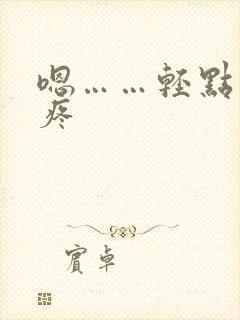 嗯……輕點
疼
賓卓